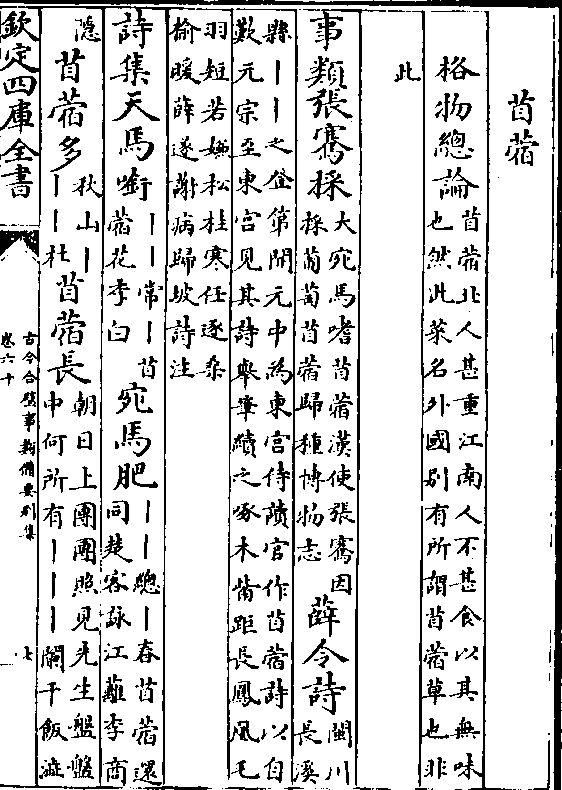 苜蓿
格物總論苜蓿北人甚重江南人不甚食以其無味
也然此菜名外國别有所謂苜蓿草也非
此
事類張騫採大宛馬嗜苜蓿漢使張騫因
採葡萄苜蓿歸種博物志薛令詩閩川
長溪
縣丨丨之登第開元中為東宫侍讀官作苜蓿詩以自
歎元宗至東宫見其詩舉筆續之啄木觜距長鳳凰毛
羽短若嫌松桂寒任逐桑
榆暖薛遂謝病歸坡詩注
詩集天馬㗸丨丨常丨苜
蓿花李白宛馬肥丨丨總丨春苜蓿還
同楚客詠江蘺李商
隱苜蓿多秋山丨
丨丨杜苜蓿長朝日上團團照見先生盤盤
中何所有丨丨丨闌干飯澁
欽定四庫全書
古今合璧事類備要别集
卷六十
七